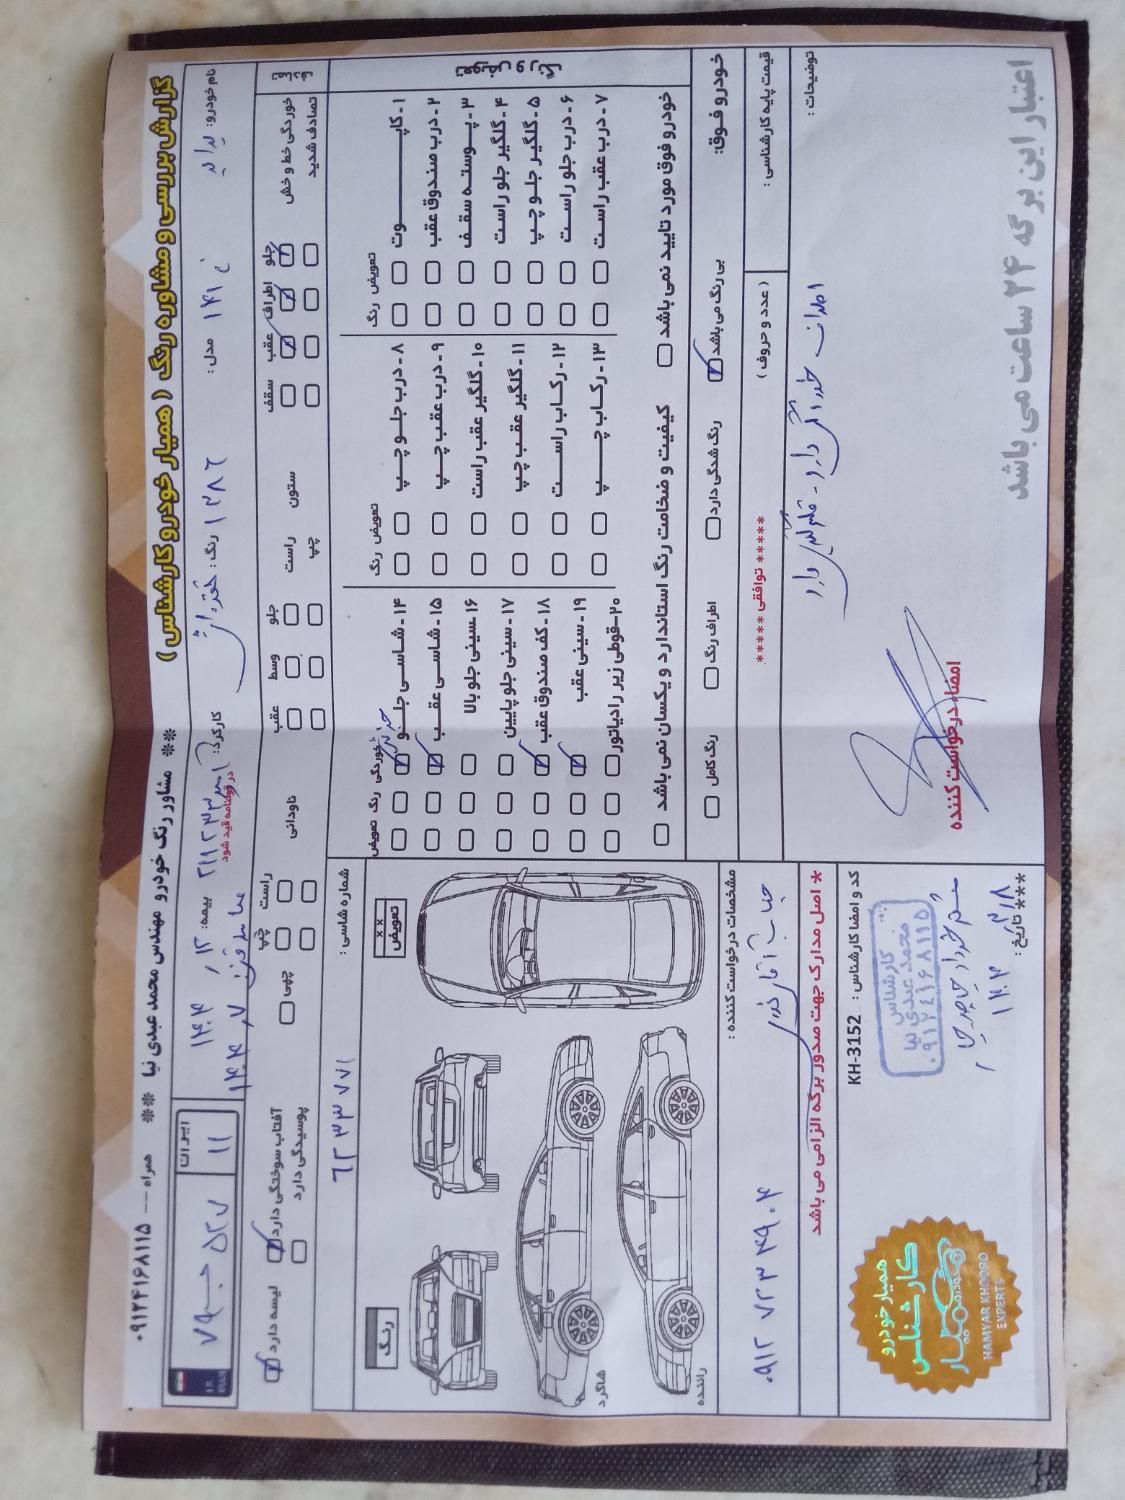 گزارش بررسی و مشاوره رنگ ( همیار خودرو کارشناس )
** مشاور رنگ خودرو مهندس محمد عبدی نیا ** همراه --- ۰۹۱۲۴۱۶۸۱۱۵
نام خودرو: پراید ۱۴۱ مدل: ۱۳۸۶ رنگ: کارکرد: در قولنامه قید شود بیمه: ۱۴۰۴/۱۲
ایران ۱۱
۵۲۷ ۷۹
رنگ و بدنه
تصادف شدید
خوردگی خط و خش
جلو اطراف عقب سقف
ستون راست چپ
جلو وسط عقب
ناودانی راست چپ
چپی
آفتاب سوختگی دارد
پوسیدگی دارد
لیسه دارد
تعویض رنگ
۱ - کاپوت
۲ - درب صندوق عقب
۳ - پوسته سقف
۴ - گلگیر جلو راست
۵ - گلگیر جلو چپ
۶ - درب جلو راست
۷ - درب عقب راست
تعویض رنگ
۸ - درب جلو چپ
۹ - درب عقب چپ
۱۰ - گلگیر عقب راست
۱۱ - گلگیر عقب چپ
۱۲ - رکاب راست
۱۳ - رکاب چپ
خوردگی رنگ تعویض
۱۴ - شاسی جلو
۱۵ - شاسی عقب
۱۶ - سینی جلو بالا
۱۷ - سینی جلو پایین
۱۸ - کف صندوق عقب
۱۹ - سینی عقب
۲۰ - قوطی زیر رادیاتور
شماره شاسی :
۶۲۳۳۷۷۱
تعویض
× ×
رنگ
شاگرد
راننده
خودرو فوق مورد تایید نمی باشد
کیفیت و ضخامت رنگ استاندارد و یکسان نمی باشد
خودرو فوق:
بی رنگ می باشد
رنگ شدگی دارد
اطراف رنگ
رنگ کامل
قیمت پایه کارشناسی :
( عدد و حروف )
***** توافقی *****
توضیحات :
اطراف دارد - دارد
امضاء درخواست کننده
اعتبار این برگه ۲۴ ساعت می باشد
مشخصات درخواست کننده :
جناب آقای
۰۹۱۲ ۷۲۳ ۴۹۰۴
* اصل مدارک جهت صدور برگه الزامی می باشد
کد و امضا کارشناس : KH-3152
کارشناس
محمد عبدی نیا
۰۹۱۲۴۱۶۸۱۱۵
*** تاریخ :
۱۴۰۴
همیار خودرو
کارشناس
همیار
HAMYAR KHODRO
EXPERTS